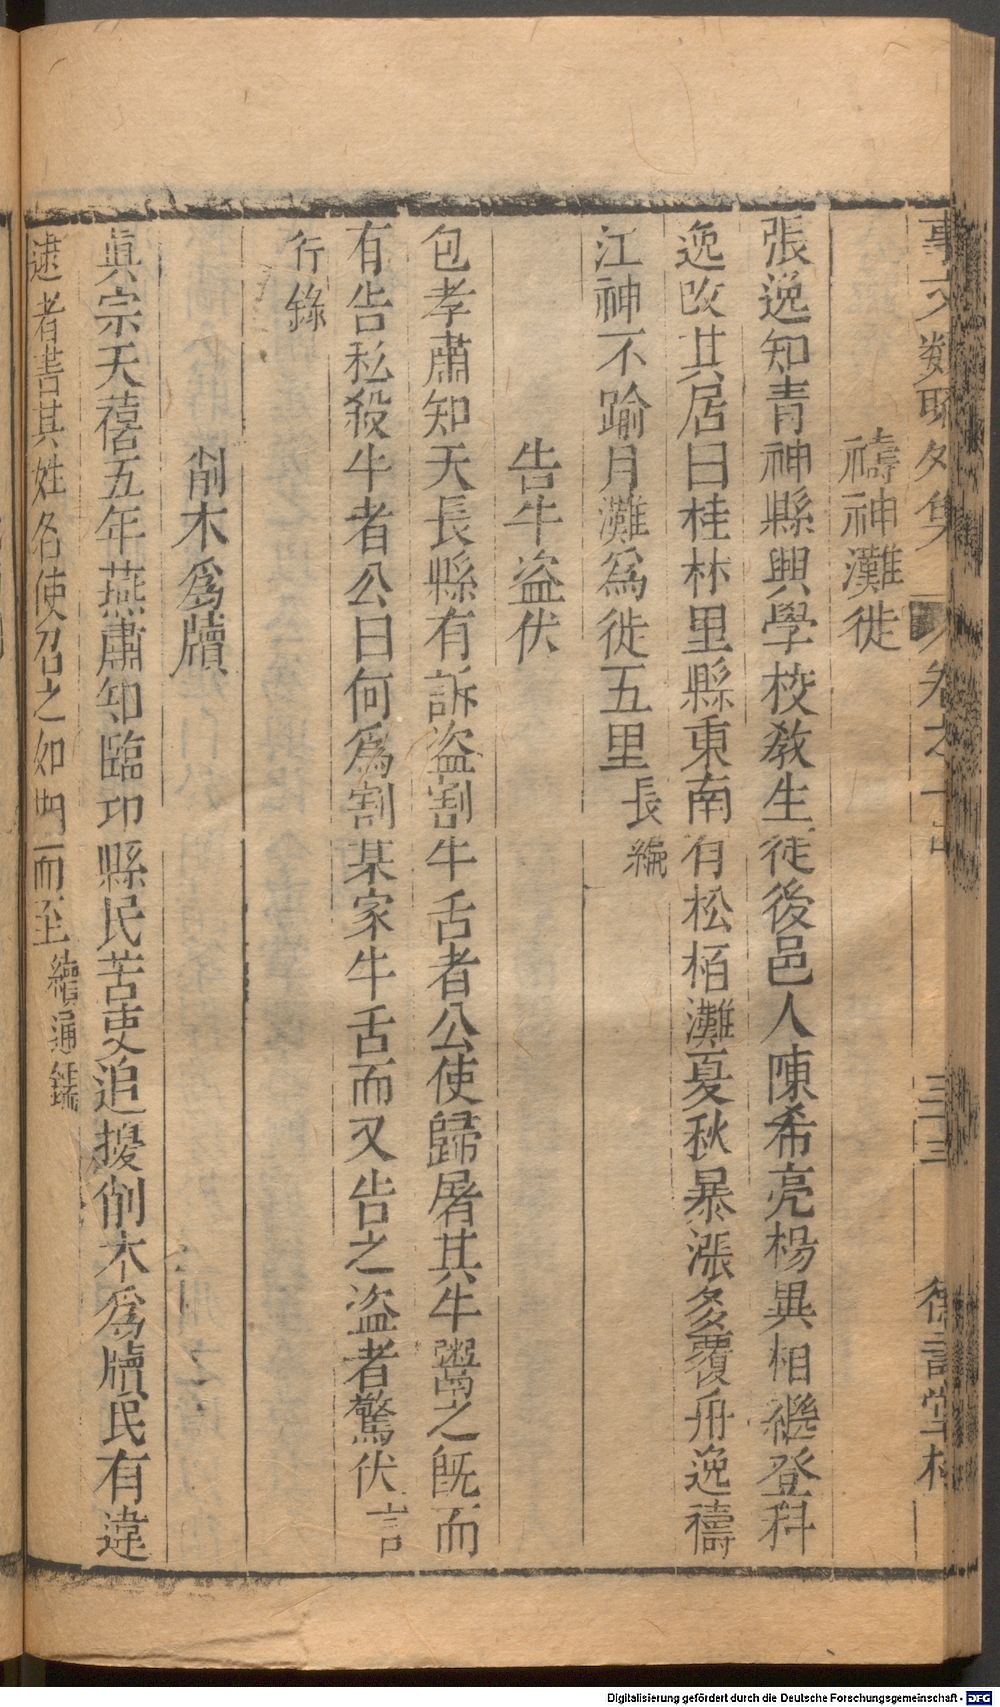 事文類聚外集 卷之十五 三十三 德壽堂梓
禱神灘徙
張逸知青神縣興學校敎生徒後邑人陳希亮楊異相繼登科
逸改其居曰桂林里縣東南有松栢灘夏秋暴漲多覆舟逸禱
江神不踰月灘爲徙五里長編
告牛盗伏
包孝肅知天長縣有訴盗割牛舌者公使歸屠其牛鬻之旣而
有告私殺牛者公曰何爲割某家牛舌而又告之盗者驚伏言
行錄
削木爲牘
眞宗天禧五年燕肅知臨邛縣民苦吏追擾削木爲牘民有違
逮者書其姓名使召之如期而至續通鑑
Digitalisierung gefördert durch die Deutsche Forschungsgemeinschaft - DFG